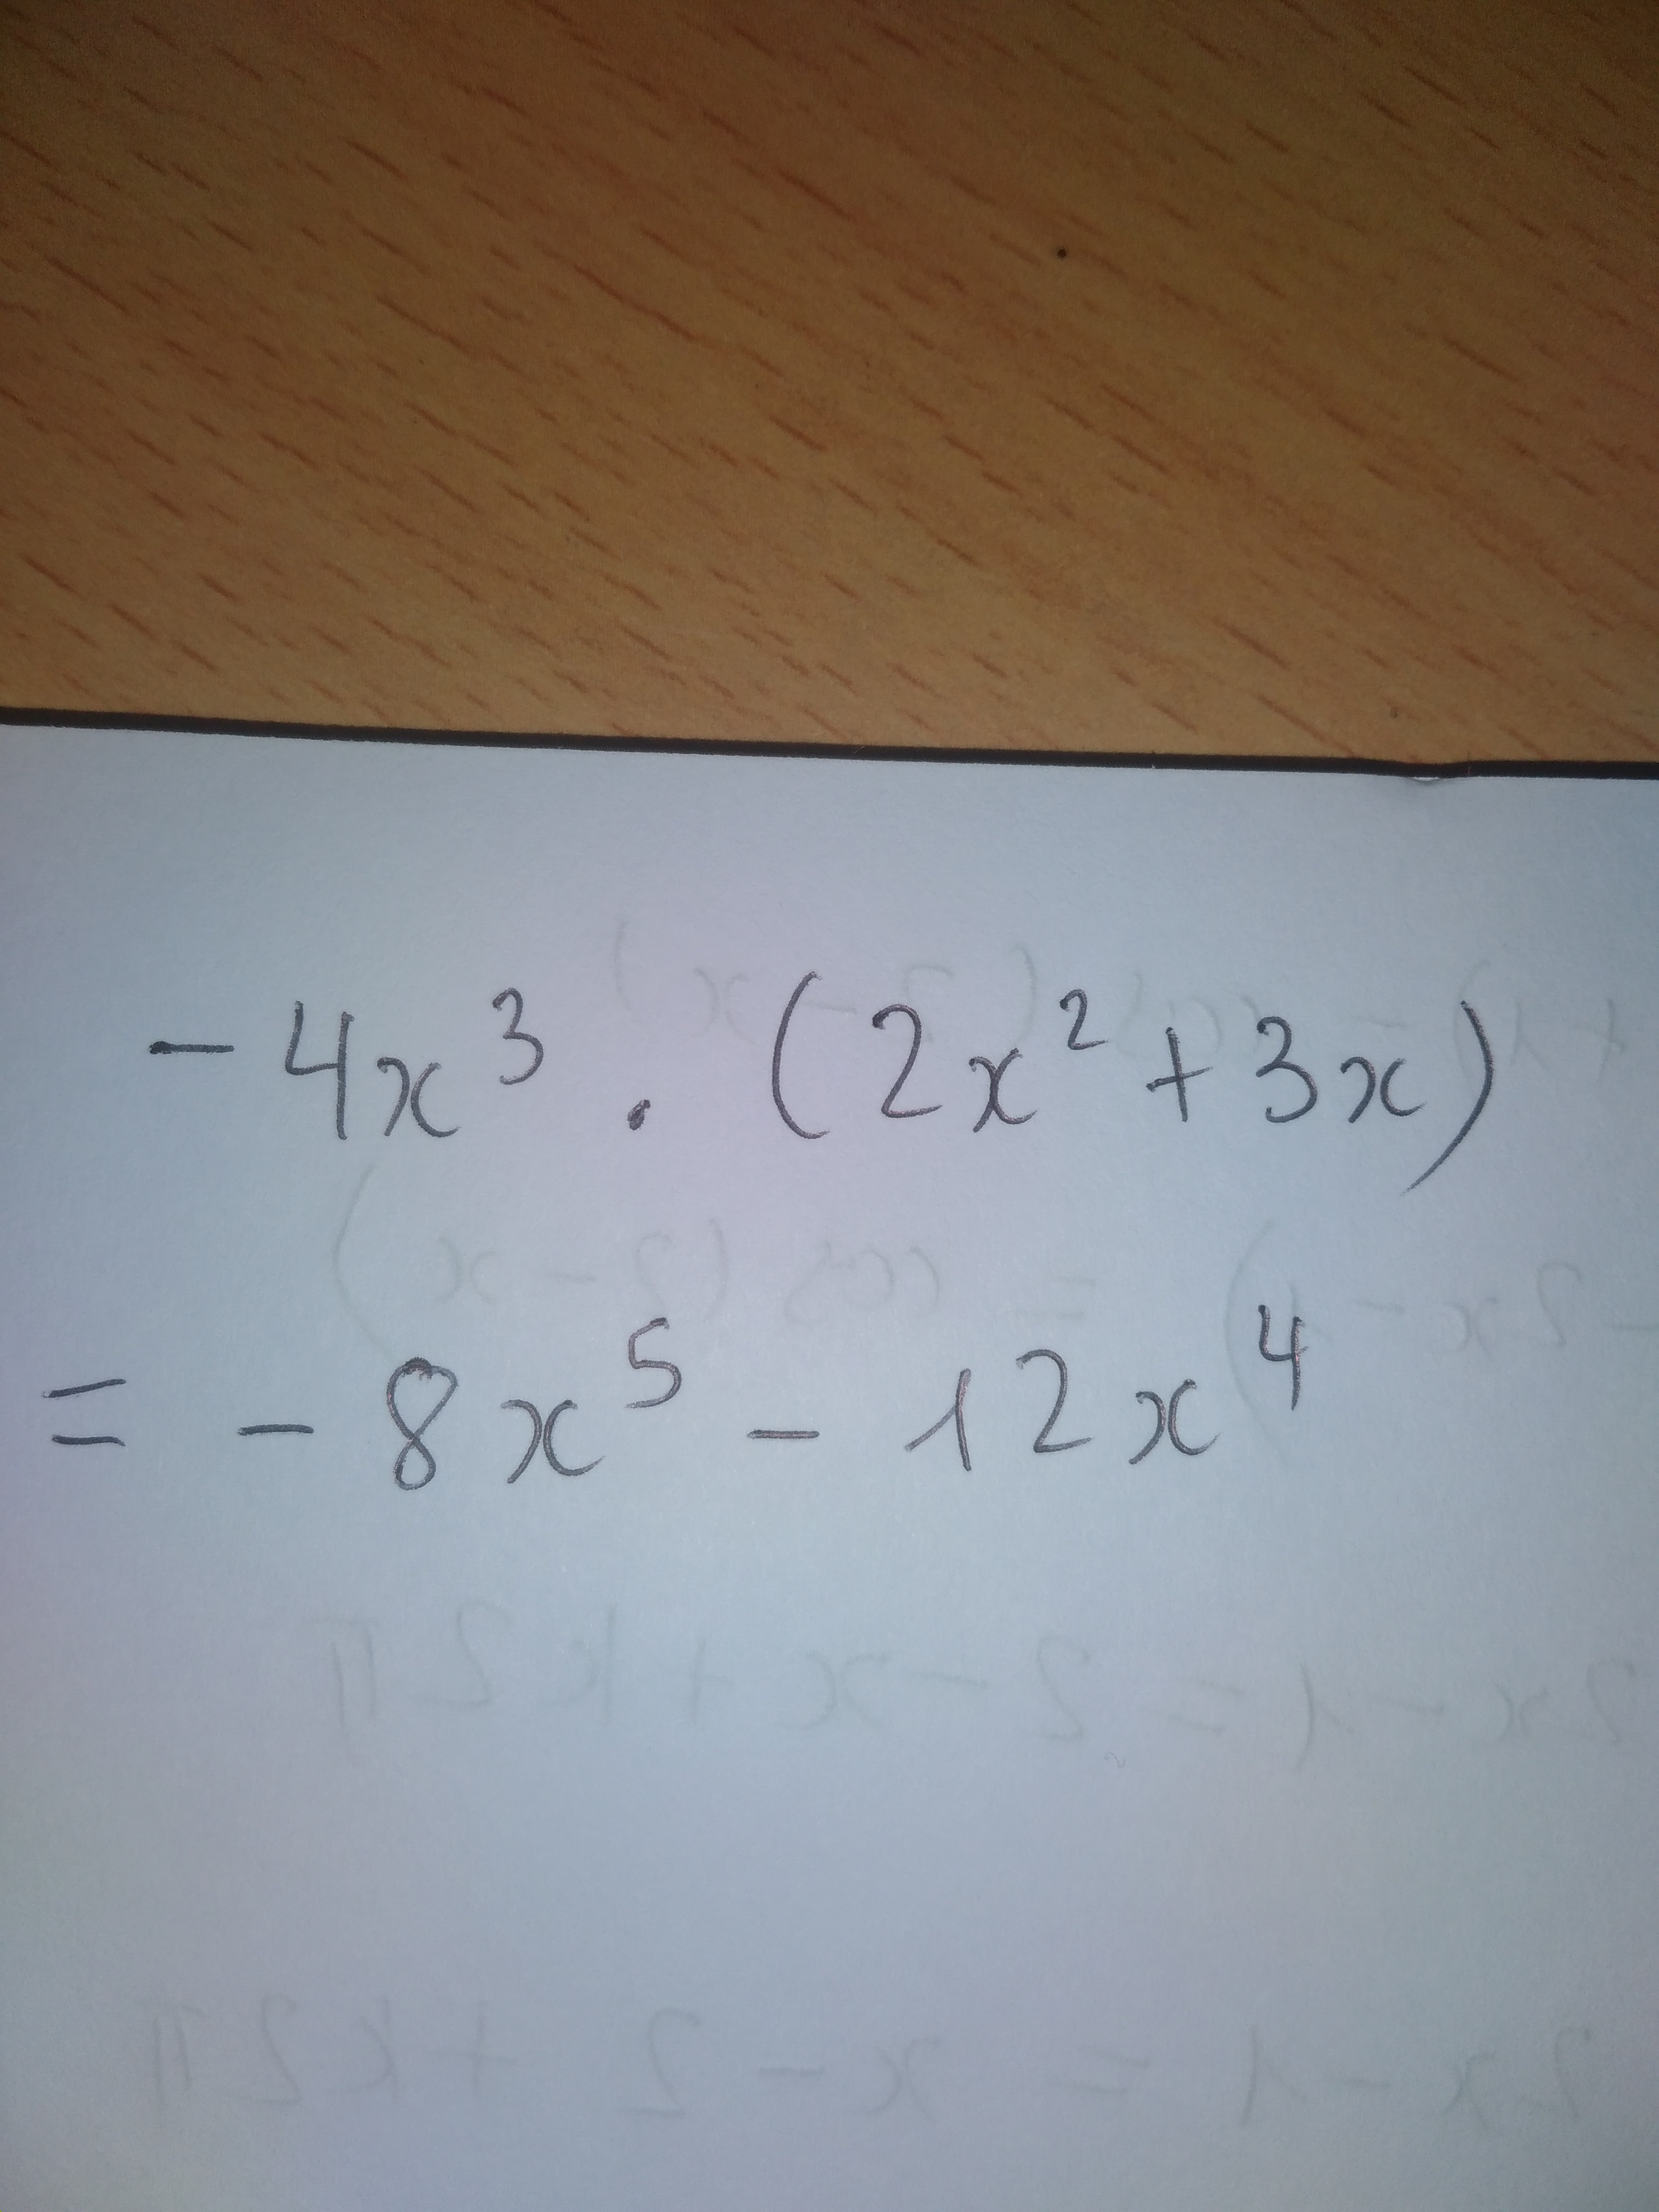 -4x³ . (2x² + 3x)
= -8x⁵ - 12x⁴